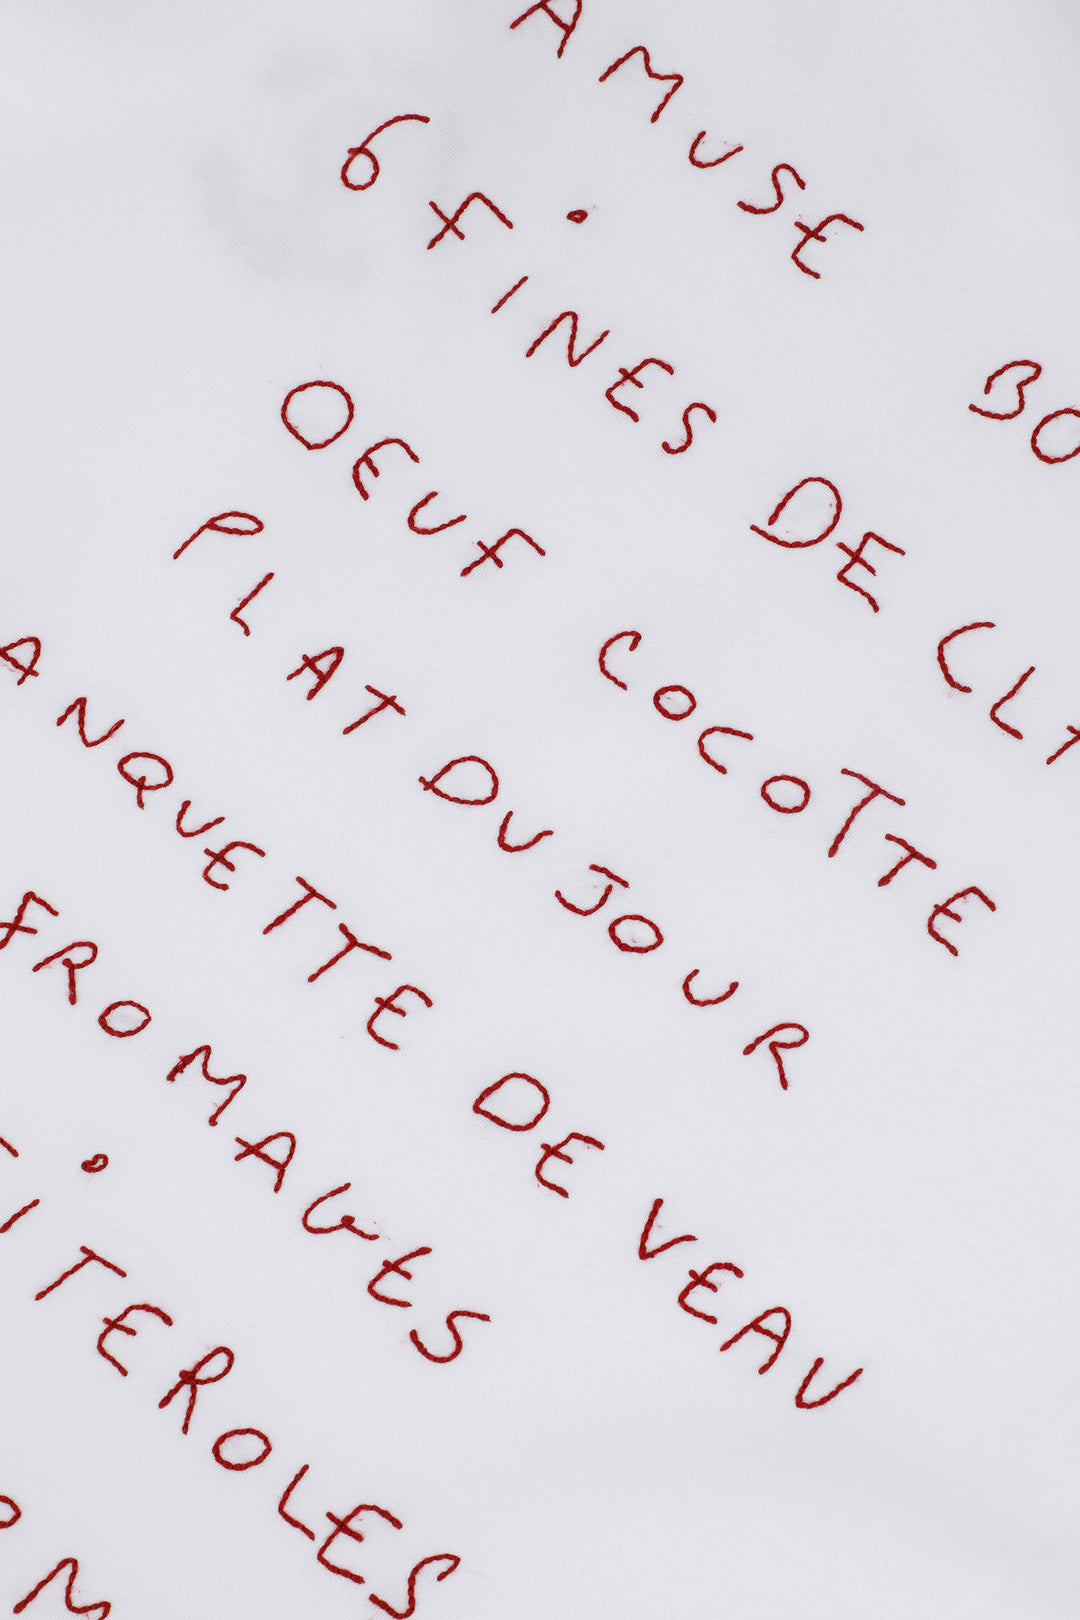 AMUSE BO
6 FINES DE CL
OEUF COCOTTE
PLAT DU JOUR
ANQUETTE DE VEAU
FROMAGES
ITEROLES